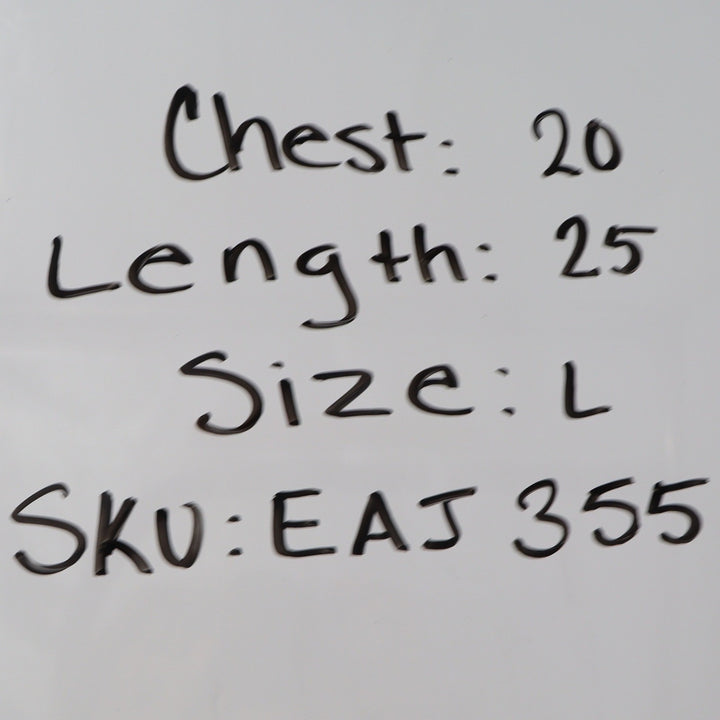 Chest: 20
Length: 25
Size: L
SKU: EAJ 355